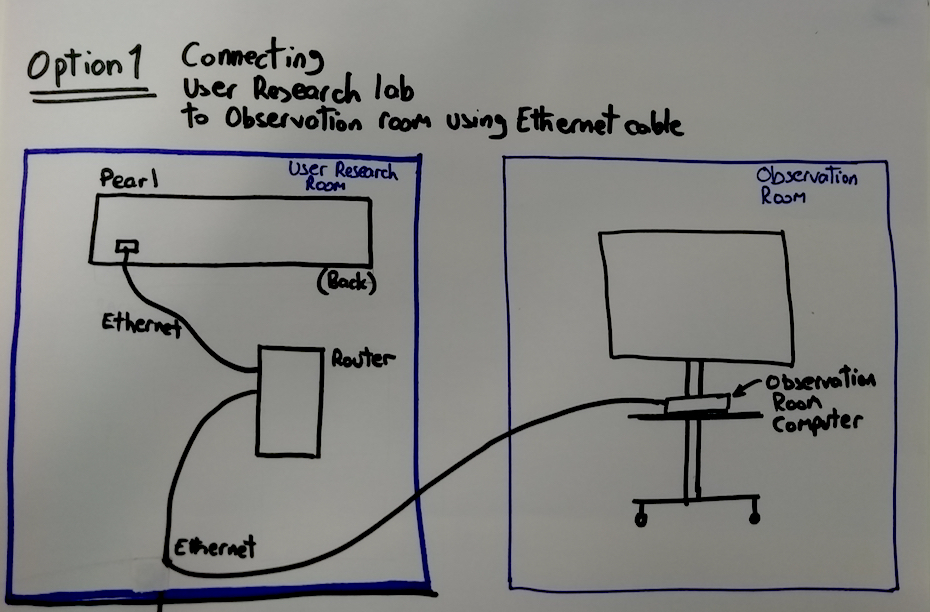 Option 1
Connecting
User Research lab
to Observation room using Ethernet cable
Pearl
User Research
Room
(Back)
Ethernet
Router
Ethernet
Observation
Room
Observation
Room
Computer